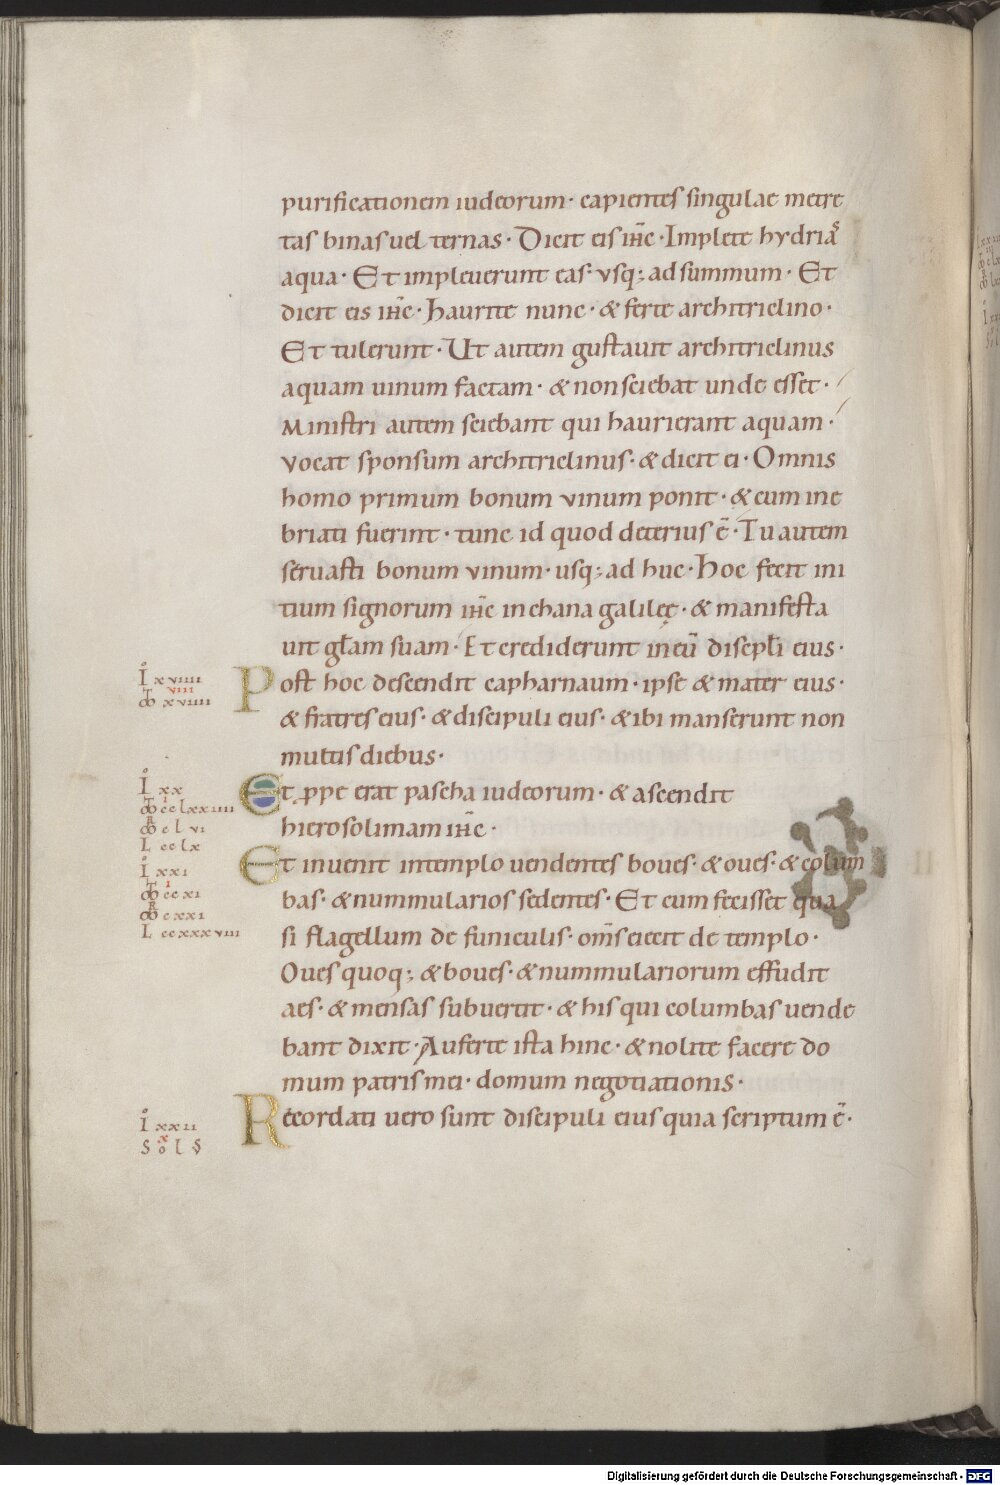 purificationem iudeorum· capientes singulae metre
tas binas uel ternas· Dicit eis ihc̄· Implete hydrias
aqua· Et impleuerunt eas· vsq; ad summum· Et
dicit eis ihc̄· haurite nunc· & ferte architriclino·
Et tulerunt· Ut autem gustauit architriclinus
aquam uinum factam· & non sciebat unde esset·
Ministri autem sciebant qui haurierant aquam·
vocat sponsum architriclinus· & dicit ei· Omnis
homo primum bonum vinum ponit· & cum ine
briati fuerint· tunc id quod deterius ē· Tu autem
seruasti bonum vinum· usq; ad huc· Hoc fecit ini
tium signorum ihc̄ in chana galileę· & manifesta
uit gl̄am suam· Et crediderunt in eū discipl̄i eius·
I xviiii
viii
xviiii
Post hoc descendit capharnaum· ipse & mater eius·
& fratres eius· & discipuli eius· & ibi manserunt non
multis diebus·
I xx
cclxxiiii
clvi
L cclx
Et ꝓpe erat pascha iudeorum· & ascendit
hierosolimam ihc̄·
I xxi
ccxi
cxxi
L ccxxxviii
Et inuenit in templo uendentes boues· & oues· & colum
bas· & nummularios sedentes· Et cum fecisset qua
si flagellum de funiculis· om̄s eiecit de templo·
Oues quoq; & boues· & nummulariorum effudit
aes· & mensas subuertit· & his qui columbas uende
bant dixit· Auferte ista hinc· & nolite facere do
mum patris mei· domum negotiationis·
I xxii
x
SolS
Recordati uero sunt discipuli eius quia scriptum ē·
Digitalisierung gefördert durch die Deutsche Forschungsgemeinschaft - DFG